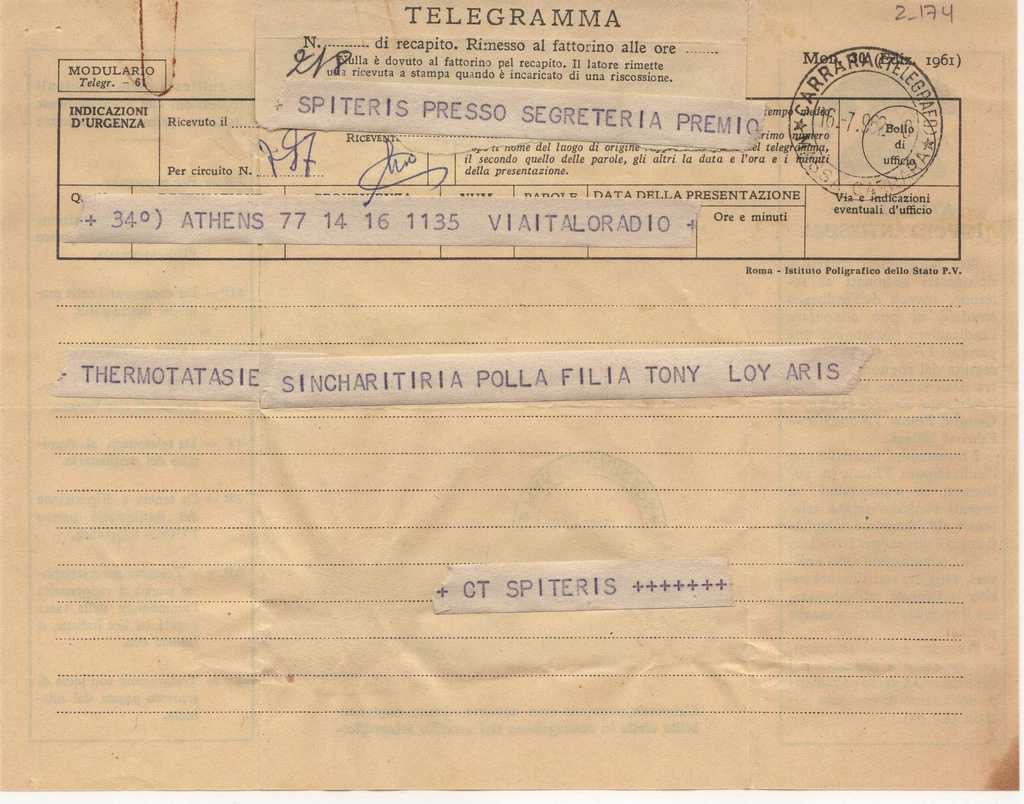 2-174
TELEGRAMMA
N. di recapito. Rimesso al fattorino alle ore
218
Nulla è dovuto al fattorino pel recapito. Il latore rimette
una ricevuta a stampa quando è incaricato di una riscossione.
Mod. 30 (Ediz. 1961)
MODULARIO
Telegr. - 61
CARRARA (TELEGRAFO)
16.-7.962
Bollo
di
ufficio
+ SPITERIS PRESSO SEGRETERIA PREMIO
INDICAZIONI
D'URGENZA
Ricevuto il
Per circuito N.
787
RICEVENT
tempo medio
primo numero
il nome del luogo di origine del telegramma,
il secondo quello delle parole, gli altri la data e l'ora e i minuti
della presentazione.
NUM. PAROLE DATA DELLA PRESENTAZIONE
Ore e minuti
Via e indicazioni
eventuali d'ufficio
+ 34º) ATHENS 77 14 16 1135 VIAITALORADIO +
Roma - Istituto Poligrafico dello Stato P.V.
THERMOTATASIE SINCHARITIRIA POLLA FILIA TONY LOY ARIS
+ CT SPITERIS +++++++